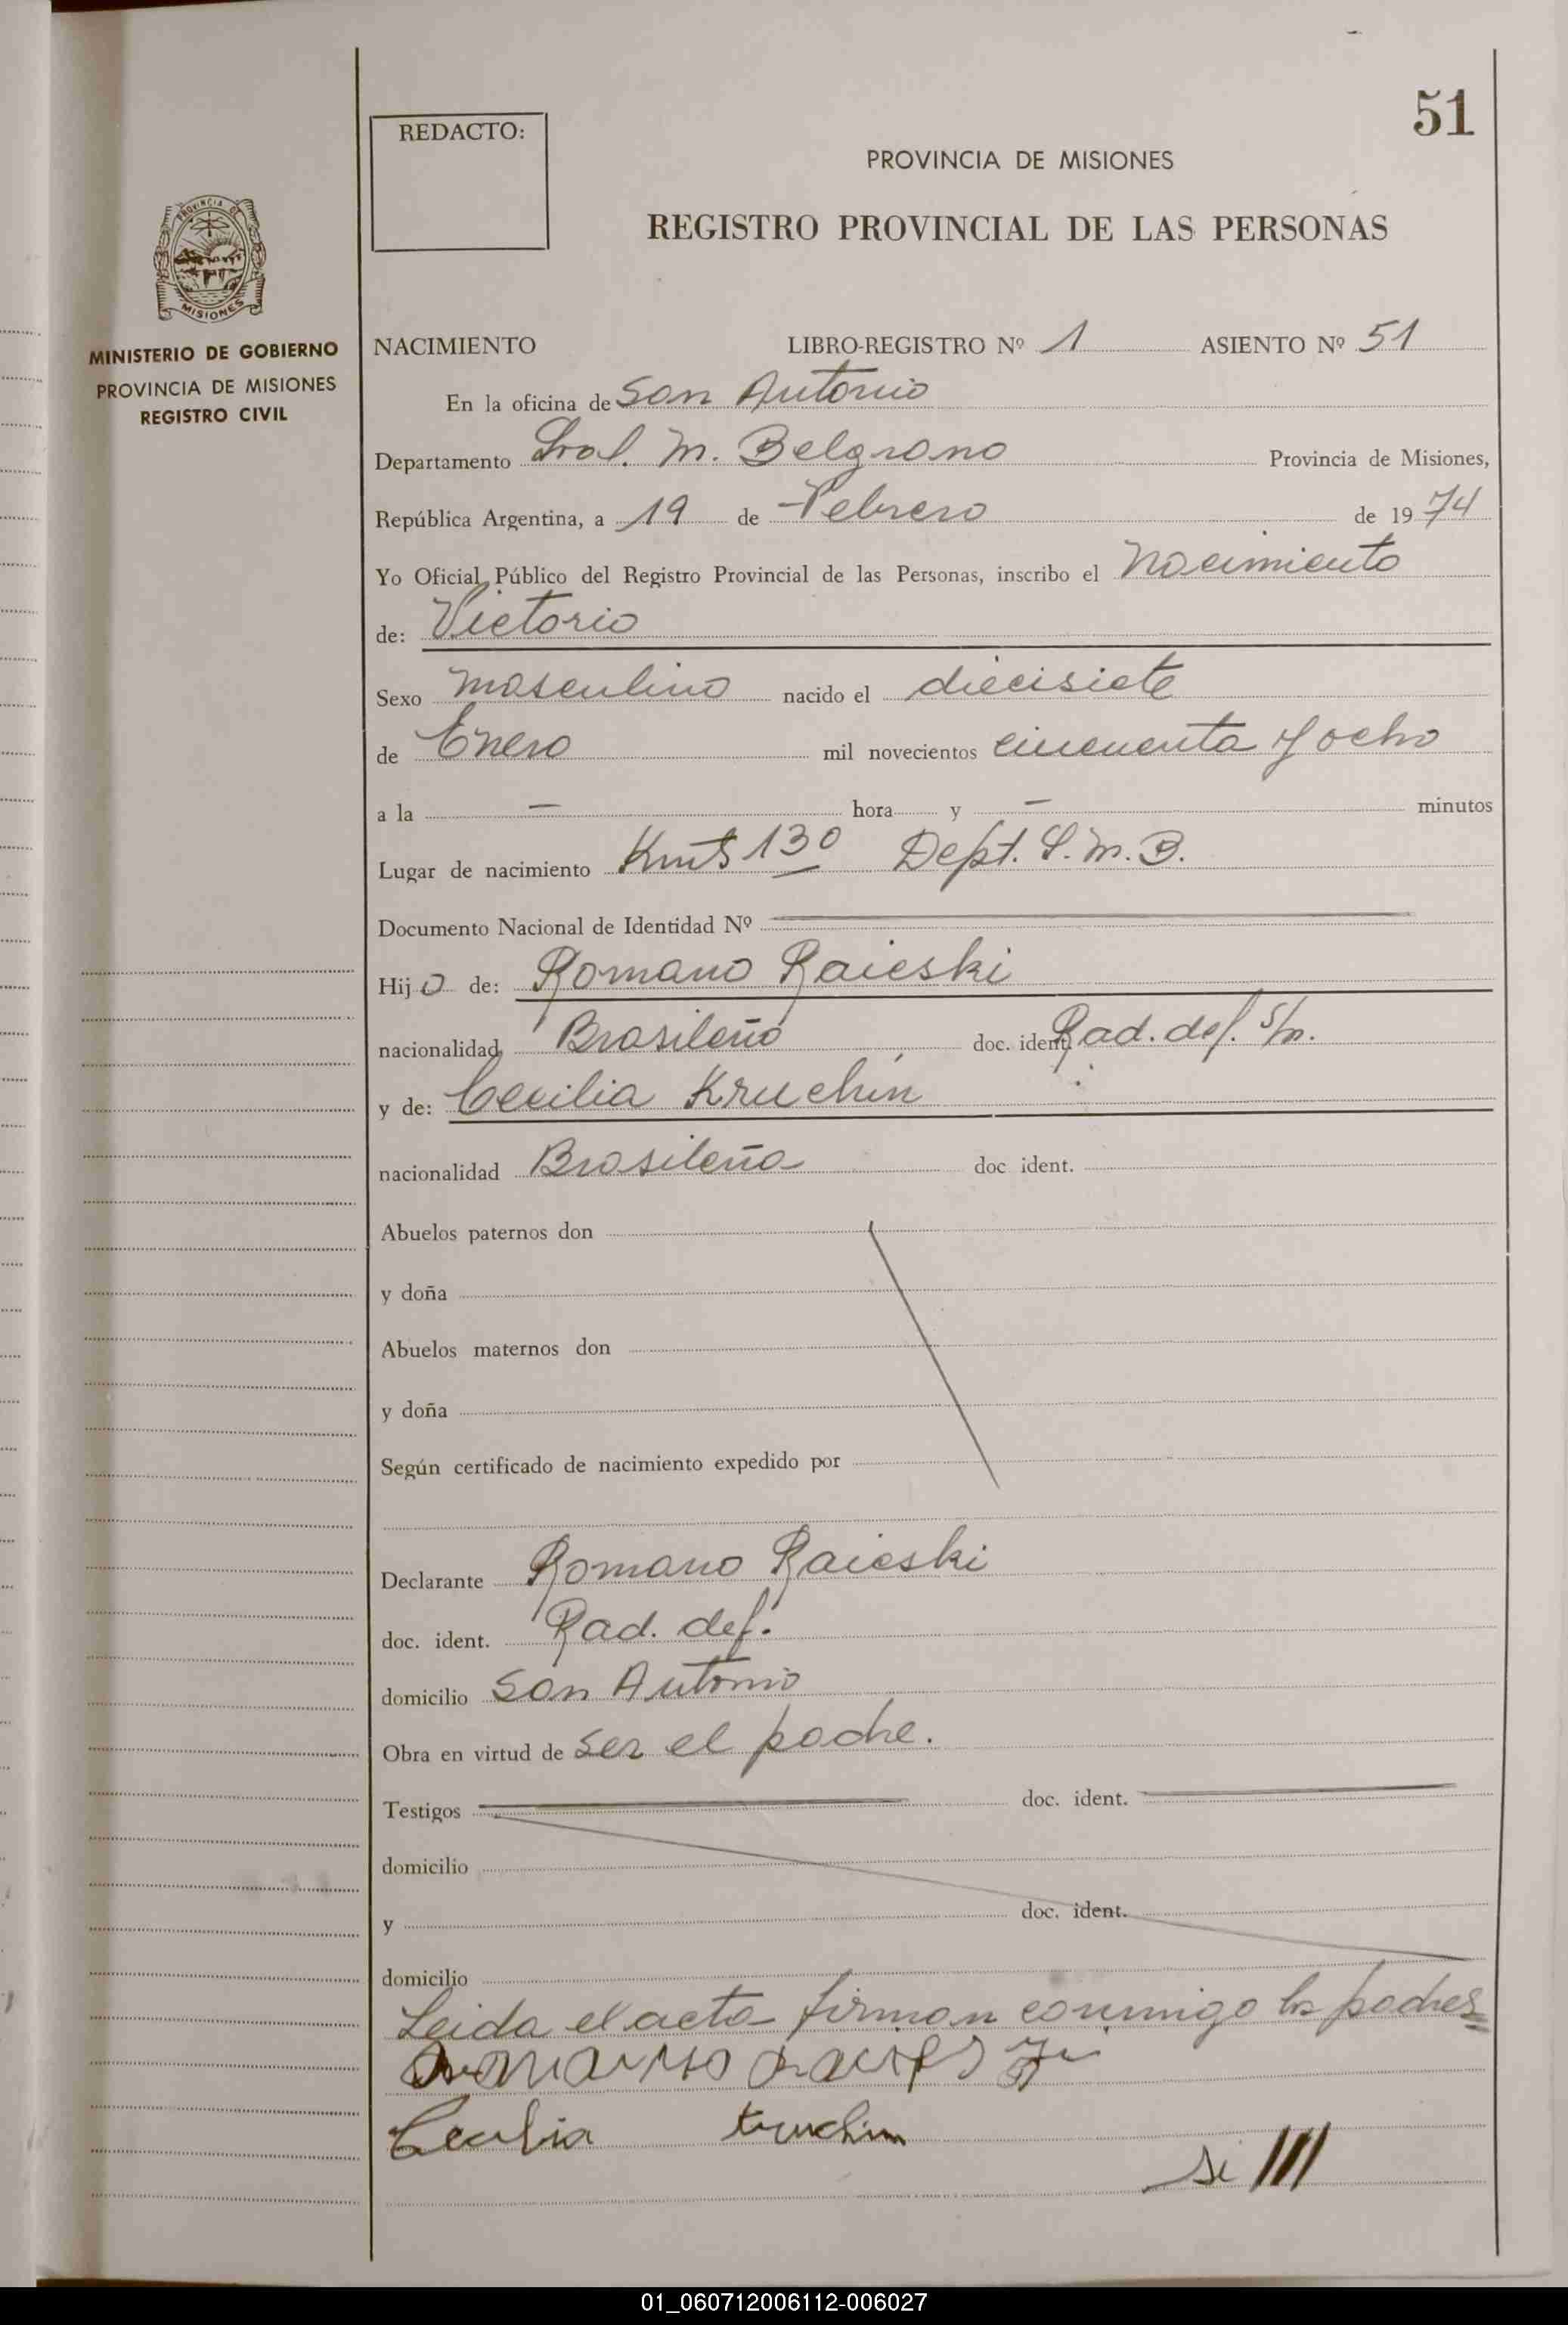 51
REDACTO:
PROVINCIA DE MISIONES
REGISTRO PROVINCIAL DE LAS PERSONAS
PROVINCIA DE
MISIONES
MINISTERIO DE GOBIERNO
PROVINCIA DE MISIONES
REGISTRO CIVIL
NACIMIENTO LIBRO-REGISTRO Nº 1 ASIENTO Nº 51
En la oficina de San Antonio
Departamento Gral. M. Belgrano Provincia de Misiones,
República Argentina, a 19 de Febrero de 1974
Yo Oficial Público del Registro Provincial de las Personas, inscribo el Nacimiento
de: Victorio
Sexo masculino nacido el diecisiete
de Enero mil novecientos cincuenta y ocho
a la — hora y — minutos
Lugar de nacimiento Kmts 130 Dept. G. M. B.
Documento Nacional de Identidad Nº
Hijo de: Romano Raieski
nacionalidad Brasileño doc. ident. Rad. def. s/n.
y de: Cecilia Kruchin
nacionalidad Brasileña doc ident.
Abuelos paternos don
y doña
Abuelos maternos don
y doña
Según certificado de nacimiento expedido por
Declarante Romano Raieski
doc. ident. Rad. def.
domicilio San Antonio
Obra en virtud de ser el padre.
Testigos doc. ident.
domicilio
y doc. ident.
domicilio
Leida el acta firman conmigo los padres
Cecilia kruchin
01_060712006112-006027